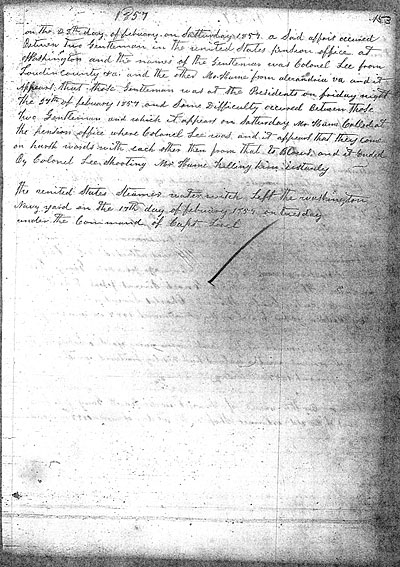 1857
153
on the 28th day of febuary on Satterday 1857. a Sad affair occured
Between two Gentleman in the united States pension office at
Washington and the names of the Gentleman was Colonel Lee from
Loudin county va. and the other Mr Hume from alexandria va and it
appears that those Gentleman was at the Presidents on friday night
the 27th of febuary 1857 and Some Difficulty occured Between those
two Gentleman and which it appears on Satterday Mr Hume Called at
the pension office where Colonel Lee was. and it appears that they came
on harsh words with each other then from that to Blows. and it Ended
By Colonel Lee Shooting Mr Hume Killing him instantly
the united States Steamer water witch Left the washington
Navy yard on the 17th day of febuary 1857 on tuesday
under the Command of Capt